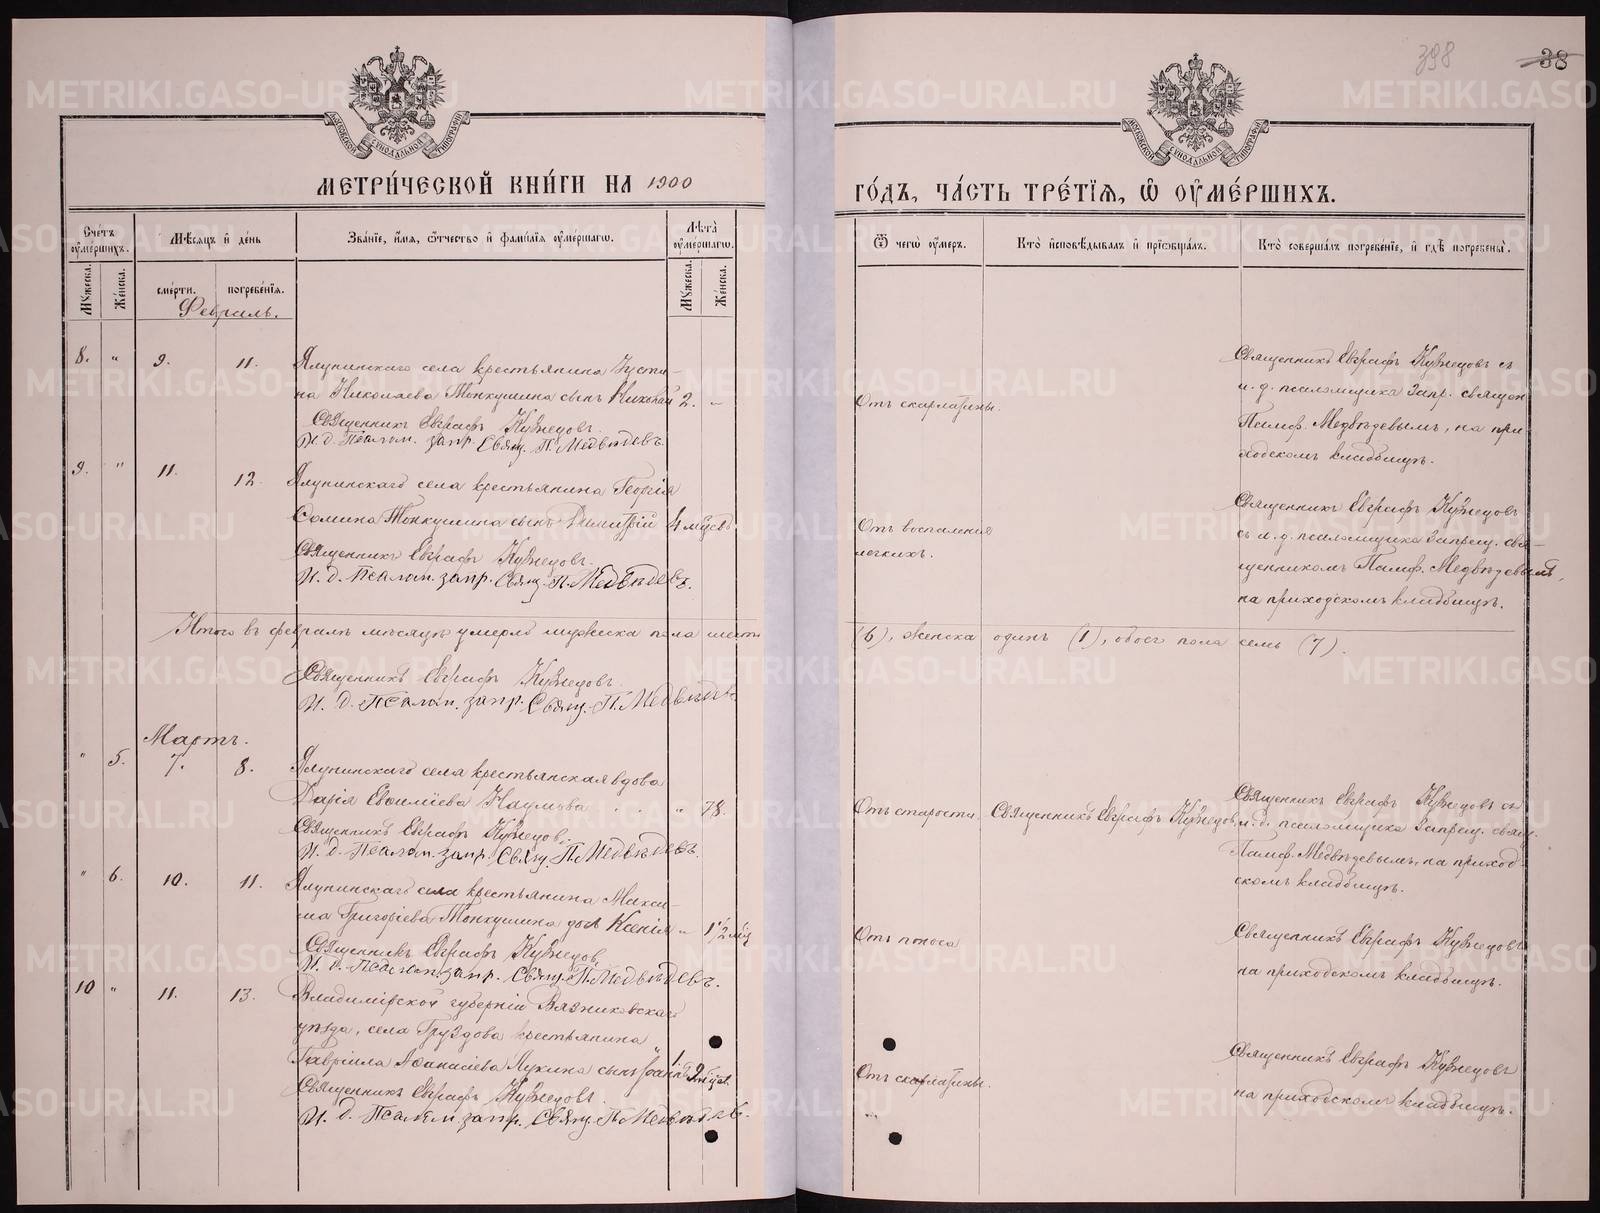 398
38
МОСКОВСКОЙ СѴНОДАЛЬНОЙ ТИПОГРАФІИ
МОСКОВСКОЙ СѴНОДАЛЬНОЙ ТИПОГРАФІИ
МЕТРИ́ЧЕСКОЙ КНИ́ГИ НА 1900
ГО́ДЪ, ЧА́СТЬ ТРЕ́ТІѦ, Ѡ҆ ОУ҆МЕ́РШИХЪ.
Счётъ оу҆ме́ршихъ.
Мѣ́сяцъ и҆ де́нь
Зва́нїе, и҆́мѧ, ѻ҆́тчество и҆ фами́лїѧ оу҆ме́ршагѡ.
Лѣ́та оу҆ме́ршагѡ.
Ѿ чегѡ̀ оу҆́меръ.
Кто̀ и҆сповѣ́дывалъ и҆ прїѡбща́лъ.
Кто̀ соверша́лъ погребе́нїе, и҆ гдѣ̀ погребены̀.
Мꙋ́жеска. Же́нска.
сме́рти. погребе́нїѧ.
Мꙋ́жеска. Же́нска.
Февраль.
8. " 9. 11. Ялунинскаго села крестьянина Іусти-
на Николаева Тонкушина сынъ Николай 2. –
Священникъ Евграфъ Кузнецовъ.
И. д. Псалом. запр. Свящ. П. Медвѣдевъ.
Отъ скарлатины.
Священникъ Евграфъ Кузнецовъ съ
и. д. псаломщика Запр. священ
Памф. Медвѣдевымъ, на при-
ходскомъ кладбищѣ.
9. " 11. 12. Ялунинскаго села крестьянина Георгія
Тонкушина сынъ Димитрій 4 мѣсяц.
Священникъ Евграфъ Кузнецовъ.
И. д. Псалом. запр. Свящ. П. Медвѣдевъ.
Отъ воспаленія
легкихъ.
Священникъ Евграфъ Кузнецовъ
съ и. д. псаломщика Запрещ. свя-
щенникомъ Памф. Медвѣдевымъ,
на приходскомъ кладбищѣ.
Итого въ февралѣ мѣсяцѣ умерло мужеска пола шесть (6), женска одинъ (1), обоего пола семь (7).
Священникъ Евграфъ Кузнецовъ.
И. д. Псалом. запр. Свящ. П. Медвѣдевъ.
Мартъ.
" 5. 7. 8. Ялунинскаго села крестьянская вдова
Дарія Наумова " 78.
Священникъ Евграфъ Кузнецовъ.
И. д. Псалом. запр. Свящ. П. Медвѣдевъ.
Отъ старости.
Священникъ Евграфъ Кузнецовъ
Священникъ Евграфъ Кузнецовъ съ
и. д. псаломщика Запрещ. свящ.
Памф. Медвѣдевымъ, на приход-
скомъ кладбищѣ.
" 6. 10. 11. Ялунинскаго села крестьянина Макси-
ма Григоріева Тонкушина дочь Ксенія " 1 1/2 мѣс
Священникъ Евграфъ Кузнецовъ
И. д. Псалом. запр. Свящ. П. Медвѣдевъ.
Отъ поноса
Священникъ Евграфъ Кузнецовъ
на приходскомъ кладбищѣ.
10 " 11. 13. Владимірской губерніи Вязниковскаго
уѣзда, села Груздова крестьянина
Гавріила Аѳанасіева Лукина сынъ 1.
Священникъ Евграфъ Кузнецовъ.
И. д. Псалом. запр. Свящ. П. Медвѣдевъ.
Отъ скарлатины.
Священникъ Евграфъ Кузнецовъ
на приходскомъ кладбищѣ.
METRIKI.GASO-URAL.RU